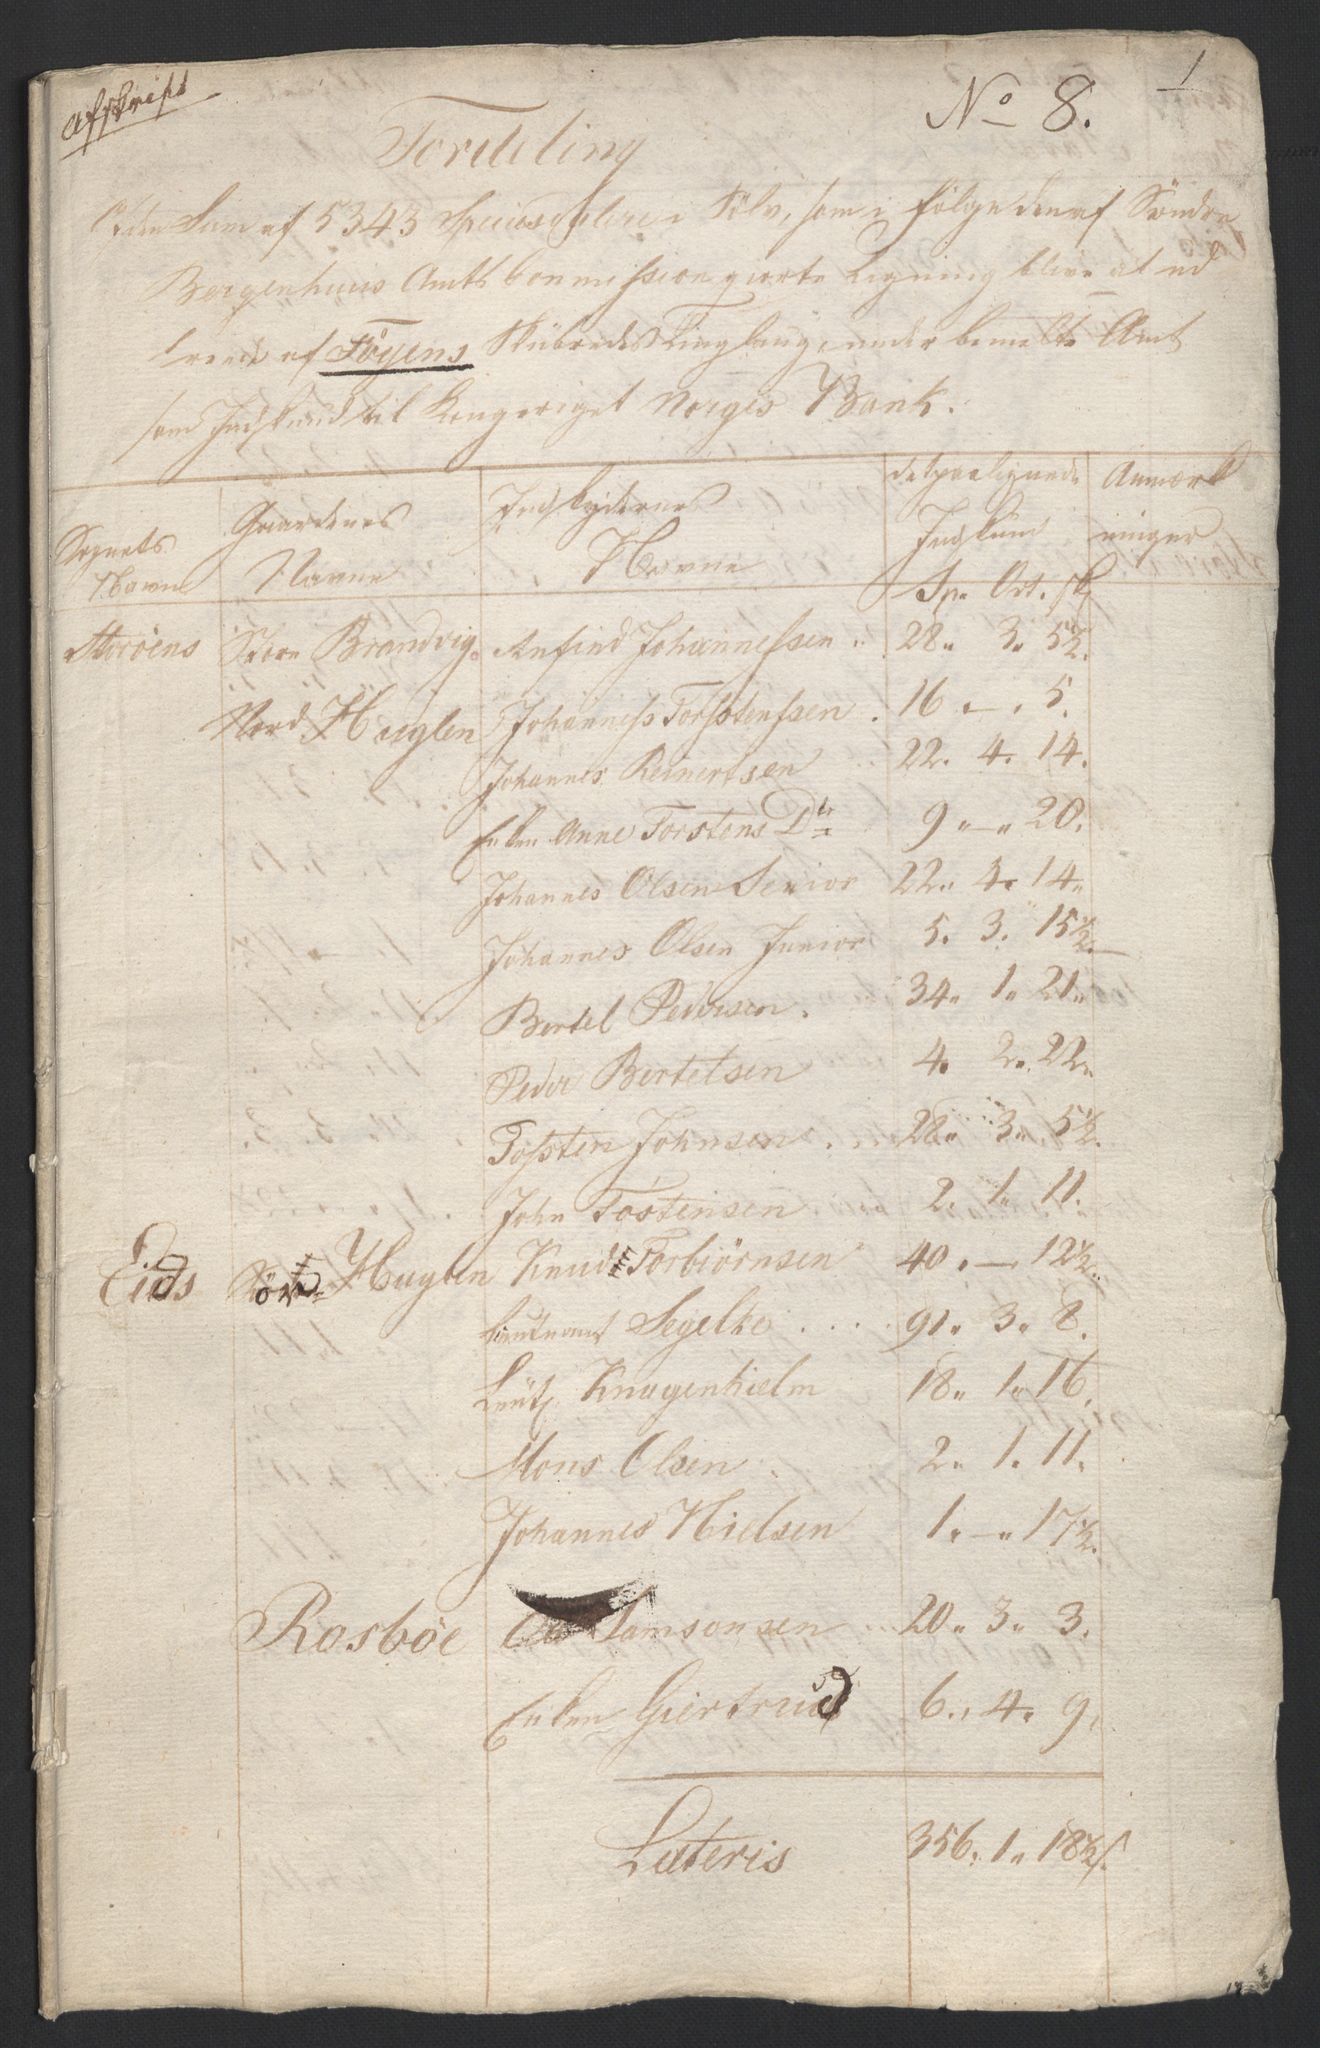 Afskrift
1
No 8.
Fordeling
Af den Sum af 5343 Speciesdalere i Sölv, som i fölge den af Söndre
Bergenhuus Amts Commission giorte Ligning bliver at ud
rede af Föyens Skibredes Tinglaug under bemelte Amt
som Indskud til Kongeriget Norges Bank.
Sognets Navn | Gaardenes Navne | Indskydernes Navne | det paalignede Indskud | Anmærkninger
Sp. Ort. sk
Storöens | Store Brandvig | Anfind Johannessen | 28 " 3 " 5½.
Nord Huglen | Johannes Torstenssen . 16 . — . 5.
Johannes Reinertsen 22. 4. 14.
Enken Anne Torstens Dtr 9 " — " 20.
Johannes Olsen Senior 22 " 4 " 14 "
Johannes Olsen Junior 5. 3. 15½.
Bertel Pedersen . 34 " 1 " 21 "
Peder Bertelsen 4. 2. 22 "
Tosten Johnsen . . 28 " 3 " 5½.
John Tostensen 2. 1. 11.
Eids | Sör Huglen | Knud Torbiörnsen 40 . — 12½.
Lieutnant Segelke . . . . 91 " 3 " 8.
Leut. Knagenhielm 18 " 1 " 16.
Mons Olsen . 2. 1. 11.
Johannes Nielsen 1. — " 17½.
Rosböe | Ole Samsonsen . . 20 " 3 " 3.
Enken Giertrud 6. 4. 9.
Lateris 356. 1 " 18½.